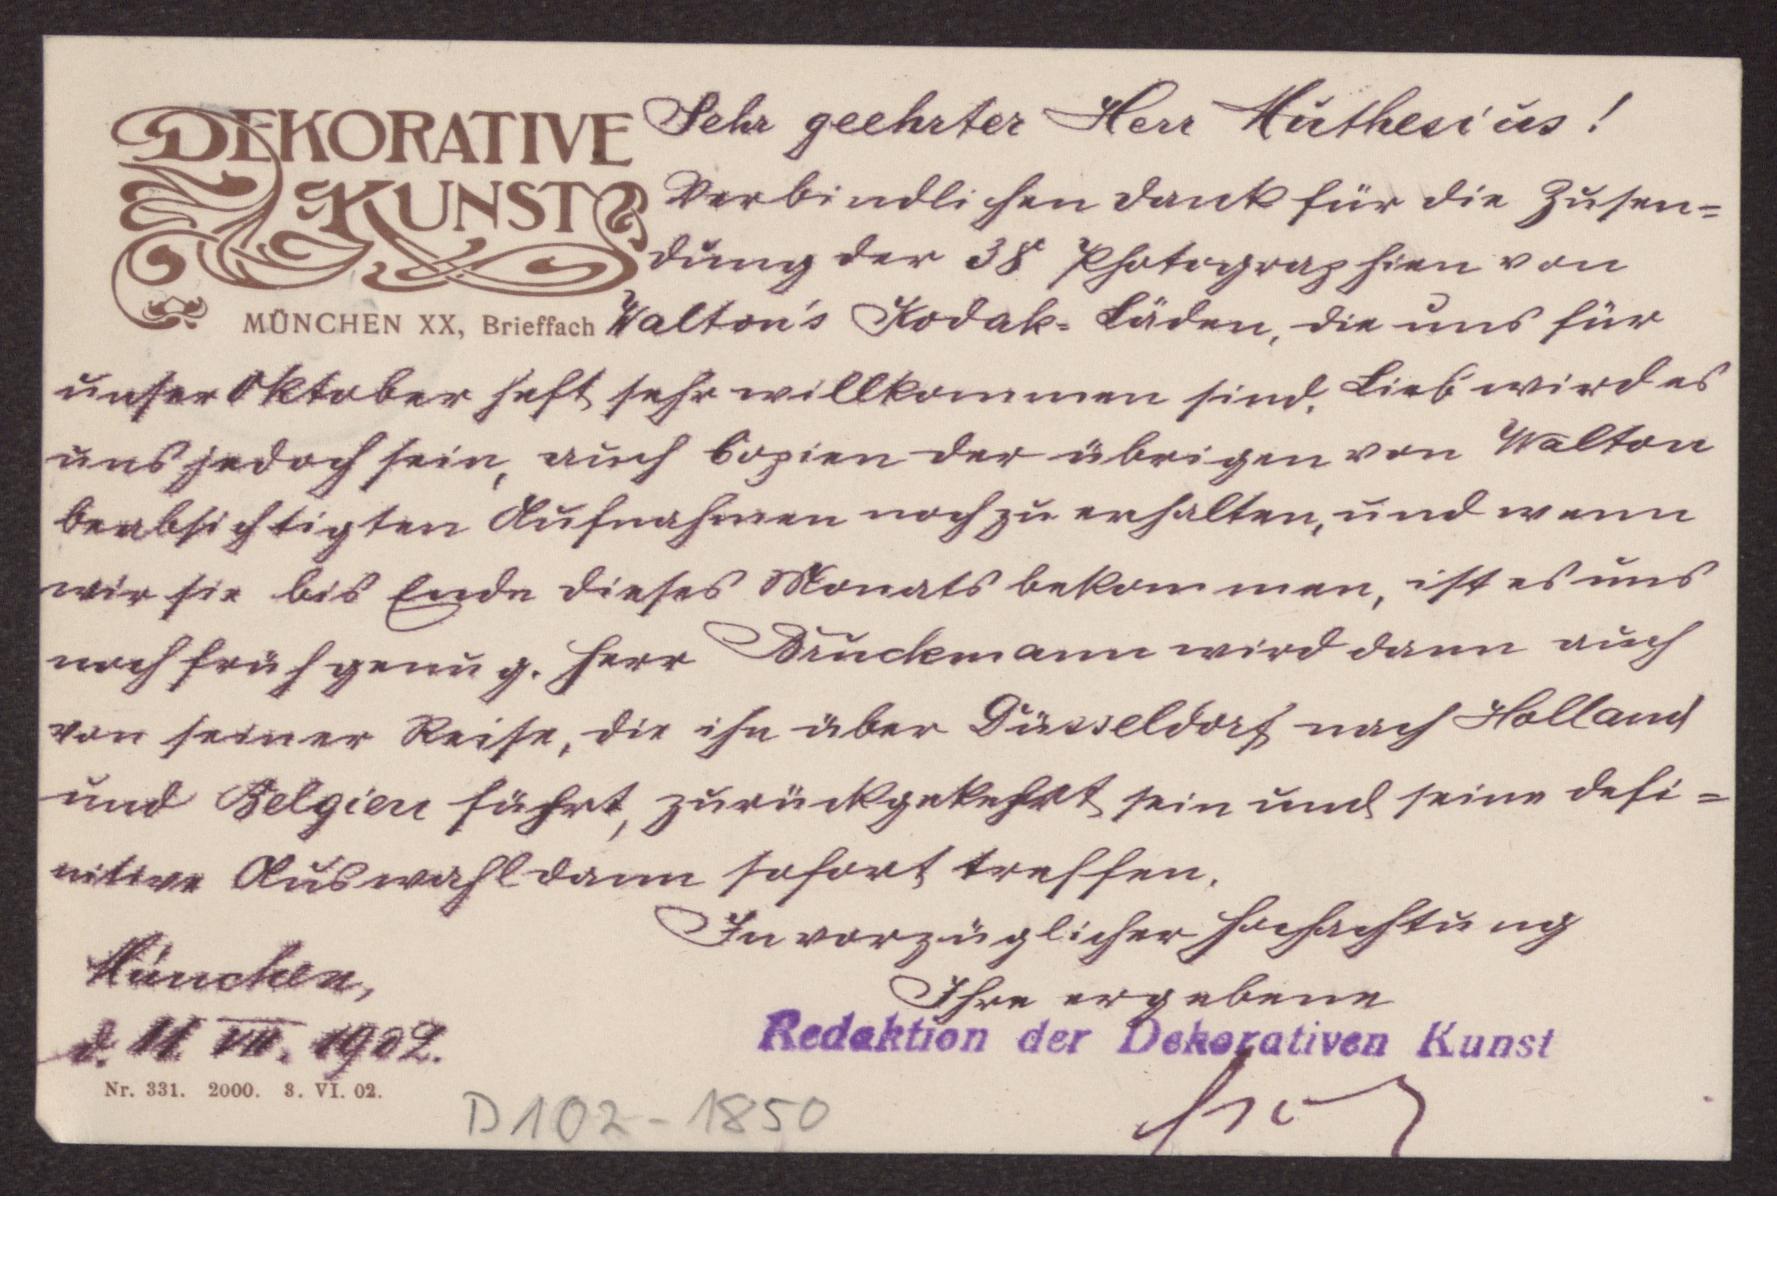 DEKORATIVE
KUNST
MÜNCHEN XX, Brieffach
Sehr geehrter Herr Muthesius!
Verbindlichen Dank für die Zusen=
dung der 38 Photographien von
Walton's Kodak-Läden, die uns für
unser Oktoberheft sehr willkommen sind. Lieb wird es
uns jedoch sein, auch Copien der übrigen von Walton
beabsichtigten Aufnahmen noch zu erhalten, und wenn
wir sie bis Ende dieses Monats bekommen, ist es uns
noch früh genug. Herr Bruckmann wird dann auch
von seiner Reise, die ihn über Düsseldorf nach Holland
und Belgien führt, zurückgekehrt sein und seine defi=
nitive Auswahl dann sofort treffen.
In vorzüglicher Hochachtung
Ihre ergebene
Redaktion der Dekorativen Kunst
München,
d. 11. VII. 1902.
Nr. 331. 2000. 3. VI. 02.
D102-1850